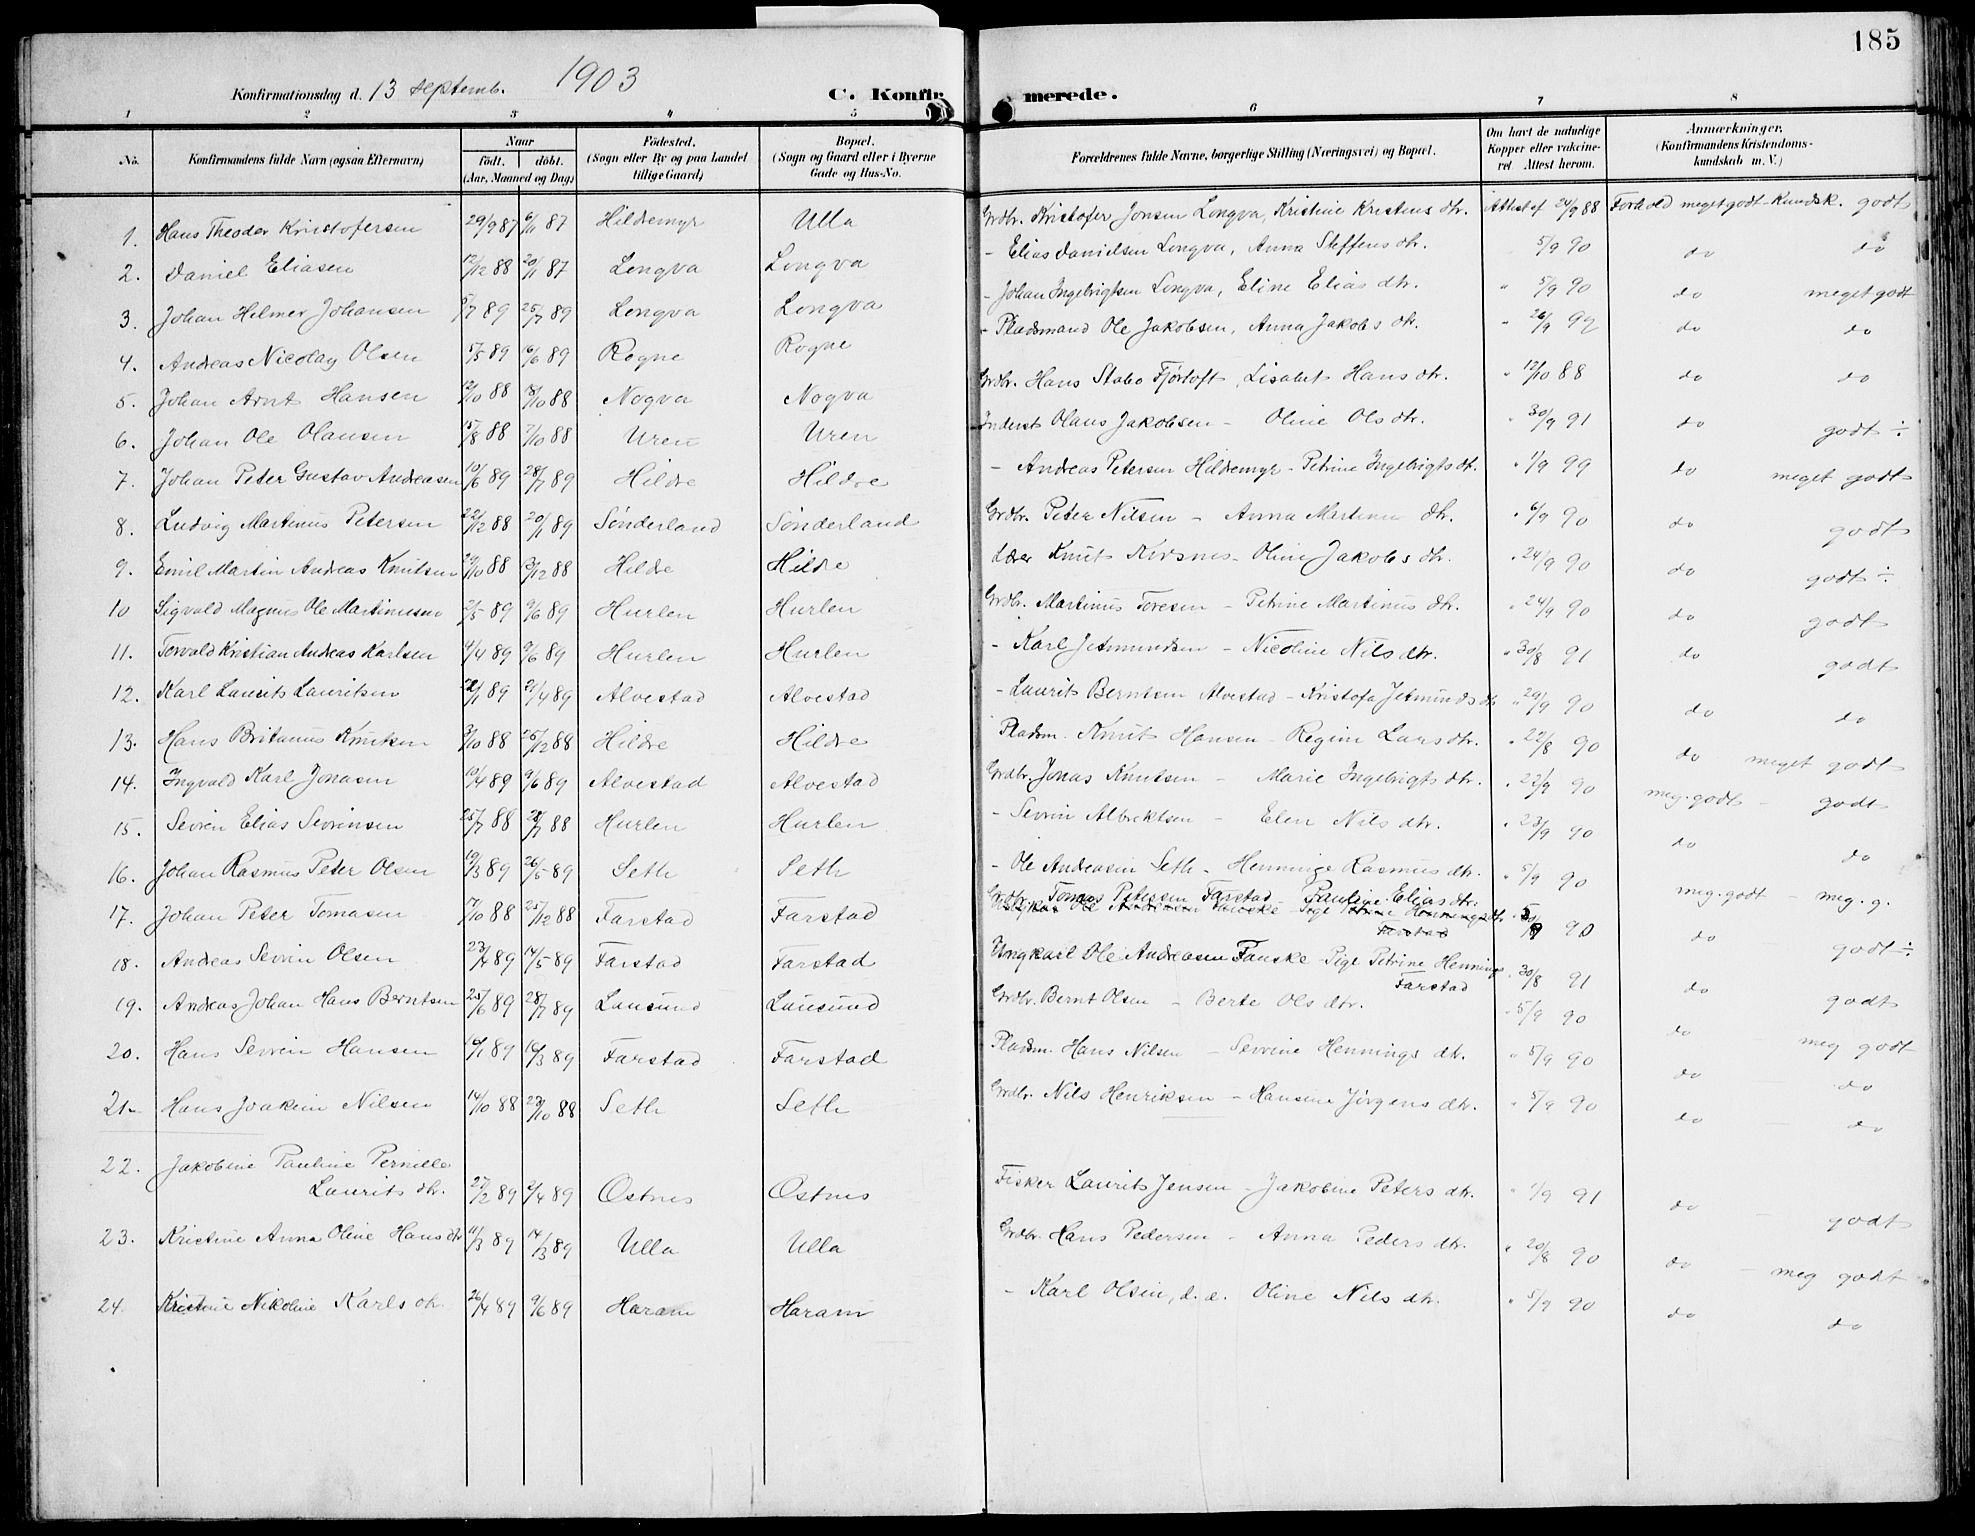 185
Konfirmationsdag d. 13 septemb. 1903
C. Konfirmerede.
1 2 3 4 5 6 7 8
No. Konfirmandens fulde Navn (ogsaa Efternavn) Naar født. døbt. (Aar, Maaned og Dag) Fødested. (Sogn eller By og paa Landet tillige Gaard) Bopæl. (Sogn og Gaard eller i Byerne Gade og Hus-No. Forældrenes fulde Navne, borgerlige Stilling (Næringsvei) og Bopæl. Om havt de naturlige Kopper eller vakcineret. Attest herom. Anmærkninger. (Konfirmandens Kristendomskundskab m. V.)
1. Hans Theodor Kristofersen 29/9 87 6/11 87 Hildremyr Ulla Grdbr. Kristofer Jonsen Longva, Kristine Kristens dtr. Attest af 24/9 88 Forhold meget godt Kundsk. godt
2. Daniel Eliasen 12/12 88 20/1 87 Longva Longva - Elias Danielsen Longva, Anna Steffens dtr. 5/9 90 do do
3. Johan Hilmer Johansen /7 89 25/7 89 Longva Longva - Johan Ingebrigtsen Longva, Eline Elias dtr. " 5/9 90 do meget godt
4. Andreas Nicolay Olsen 5/5 89 6/6 89 Rogne Rogne - Pladsmand Ole Jakobsen, Anna Jakobs dtr. " 26/9 92 do do
5. Johan Arnt Hansen 12/10 88 18/10 88 Nogva Nogva Grdbr. Hans Stabo Fjørtoft, Lisabet Hans dtr. " 12/10 88 do do
6. Johan Ole Olausen 15/8 88 7/10 88 Uren Uren Inderst Olaus Jakobsen - Oline Ols dtr. " 30/9 91 do godt ÷
7. Johan Peter Gustav Andreasen 10/6 89 28/7 89 Hildre Hildre - Andreas Petersen Hildremyr - Petrine Ingebrigts dt. " 1/9 99 do meget godt
8. Ludvig Martinus Petersen 22/12 88 20/1 89 Sønderland Sønderland Grdbr. Peter Nilsen - Anna Martinus dtr. " 6/9 90 do godt
9. Emil Martin Andreas Knutsen /10 88 /12 88 Hildre Hildre Lærer Knut - Oline Jakobs dtr. " 24/9 90 do godt ÷
10 Sigvald Magnus Ole Martinusen 2/5 89 9/6 89 Hurlen Hurlen Grdbr. Martinus Toresen - Petrine Martinus dtr. " 24/9 90 do godt
11. Torvald Kristian Andreas Karlsen 4/4 89 9/6 89 Hurlen Hurlen - Karl Jetmundsen - Nicoline Nils dtr. " 30/8 91 do godt
12. Karl Laurits Lauritsen 22/1 89 2/4 89 Alvestad Alvestad - Laurits Berntsen Alvestad - Kristofa Jetmunds dtr " 29/9 90 do do
13. Hans Britanus Knutsen /10 88 26/12 88 Hildre Hildre Pladsm. Knut Hansen - Regine Lars dtr. " 22/8 90 do meget godt
14. Ingvald Karl Jonasen 10/4 89 9/6 89 Alvestad Alvestad Grdbr. Jonas Knutsen - Marie Ingebrigts dtr. " 22/9 90 meg. godt - godt
15. Sevrin Elias Sevrinsen 25/7 88 /7 88 Hurlen Hurlen - Sevrin Albrektsen - Elen Nils dtr. " 23/9 90 do do
16. Johan Rasmus Peter Olsen 19/3 89 26/5 89 Seth Seth - Ole Andreasen Seth - Henninge Rasmus dtr. " 5/9 90 meg. godt - meg. g.
17. Johan Peter Tomasen 17/10 88 25/12 88 Farstad Farstad Grdbr. Tomas Petersen Farstad Pauline Elias dtr. Farstad 90 do godt ÷
18. Andreas Sevrin Olsen 23/4 89 14/5 89 Farstad Farstad Ungkarl Ole Andreasen Fauske - Pige Petrine Hennings Farstad " 30/8 91 do godt
19. Andreas Johan Hans Berntsen 25/6 89 28/7 89 Lausund Lausund Grdbr. Bernt Olsen - Berte Ols dtr. " 5/9 90 do - meg godt
20. Hans Sevrin Hansen 16/1 89 16/3 89 Farstad Farstad Pladsm. Hans Nilsen - Sevrine Hennings dtr. " 5/9 90 do do
21. Hans Joakim Nilsen 14/10 88 23/10 88 Seth Seth Grdbr. Nils Henriksen - Hansine Jørgens dtr. " 5/9 90 do - do
22. Jakobine Pauline Pernille
Laurits dtr. 27/2 89 2/4 89 Ostnes Ostnes Fisker Laurits Jensen - Jakobine Peters dtr. " 1/9 91 do - godt
23. Kristine Anna Oline Hans dtr 11/3 89 14/3 89 Ulla Ulla Grdbr. Hans Pedersen - Anna Peders dtr. " 20/8 90 do - meg godt
24. Kristine Nikoline Karls dtr. 26/4 89 9/6 89 Haram Haram - Karl Olsen, d. e. Oline Nils dtr. " 5/9 90 do do